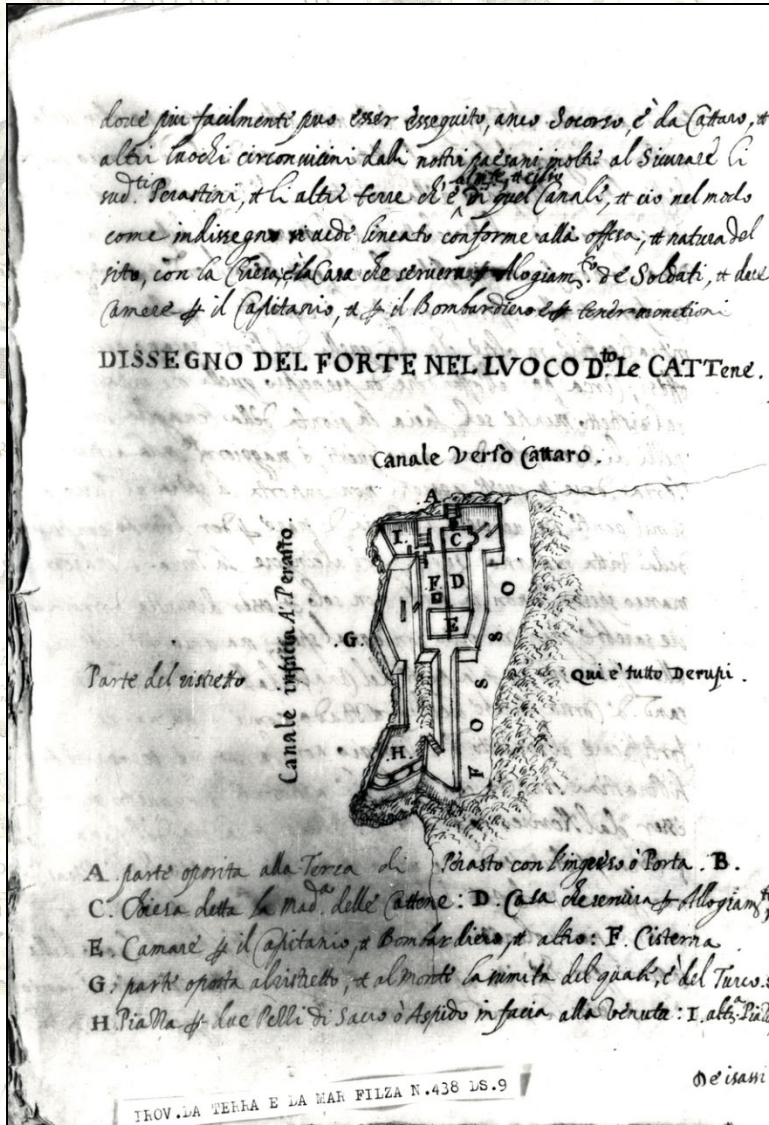 doue piu facilmente puo esser esseguito, anco Socorso, è da Cattaro, et
altri luochi circonuicini dalli nostri paesani inoltre al Sicurare li
sud.ti Perastini, et li altre terre ch'è di quel Canale, et cio nel modo
come indissegno si uede lineato conforme alla offesa, et natura del
sito, con la Chiesa, è la Casa che seruira p Allogiam.to de Soldati, et due
Camere p il Capitanio, et p il Bombardiero e p tener monetioni
DISSEGNO DEL FORTE NEL LVOCO D.to Le CATTene.
Canale Verso Cattaro.
A
I.
C
F.
D
E
FOSSO
.G.
Canale infacia A' Perasto
Parte del ristretto
Qui è tutto Derupi.
.H.
A parte oposita alla Terra di Perasto con l'ingreso ò Porta. B.
C. Chiesa detta la mad.a delle Cattene: D. Casa che seruira p Allogiam.to
E. Camare p il Capitanio, et Bombardiero, et altro: F. Cisterna
G. parte oposta al ristretto, et al monte la sumita del quale, è del Turco.
H Piazza p due Pezzi di Sacro ò Aspido in facia alla Venuta: I. altra
De
PROV.DA TERRA E DA MAR FILZA N.438 DS.9